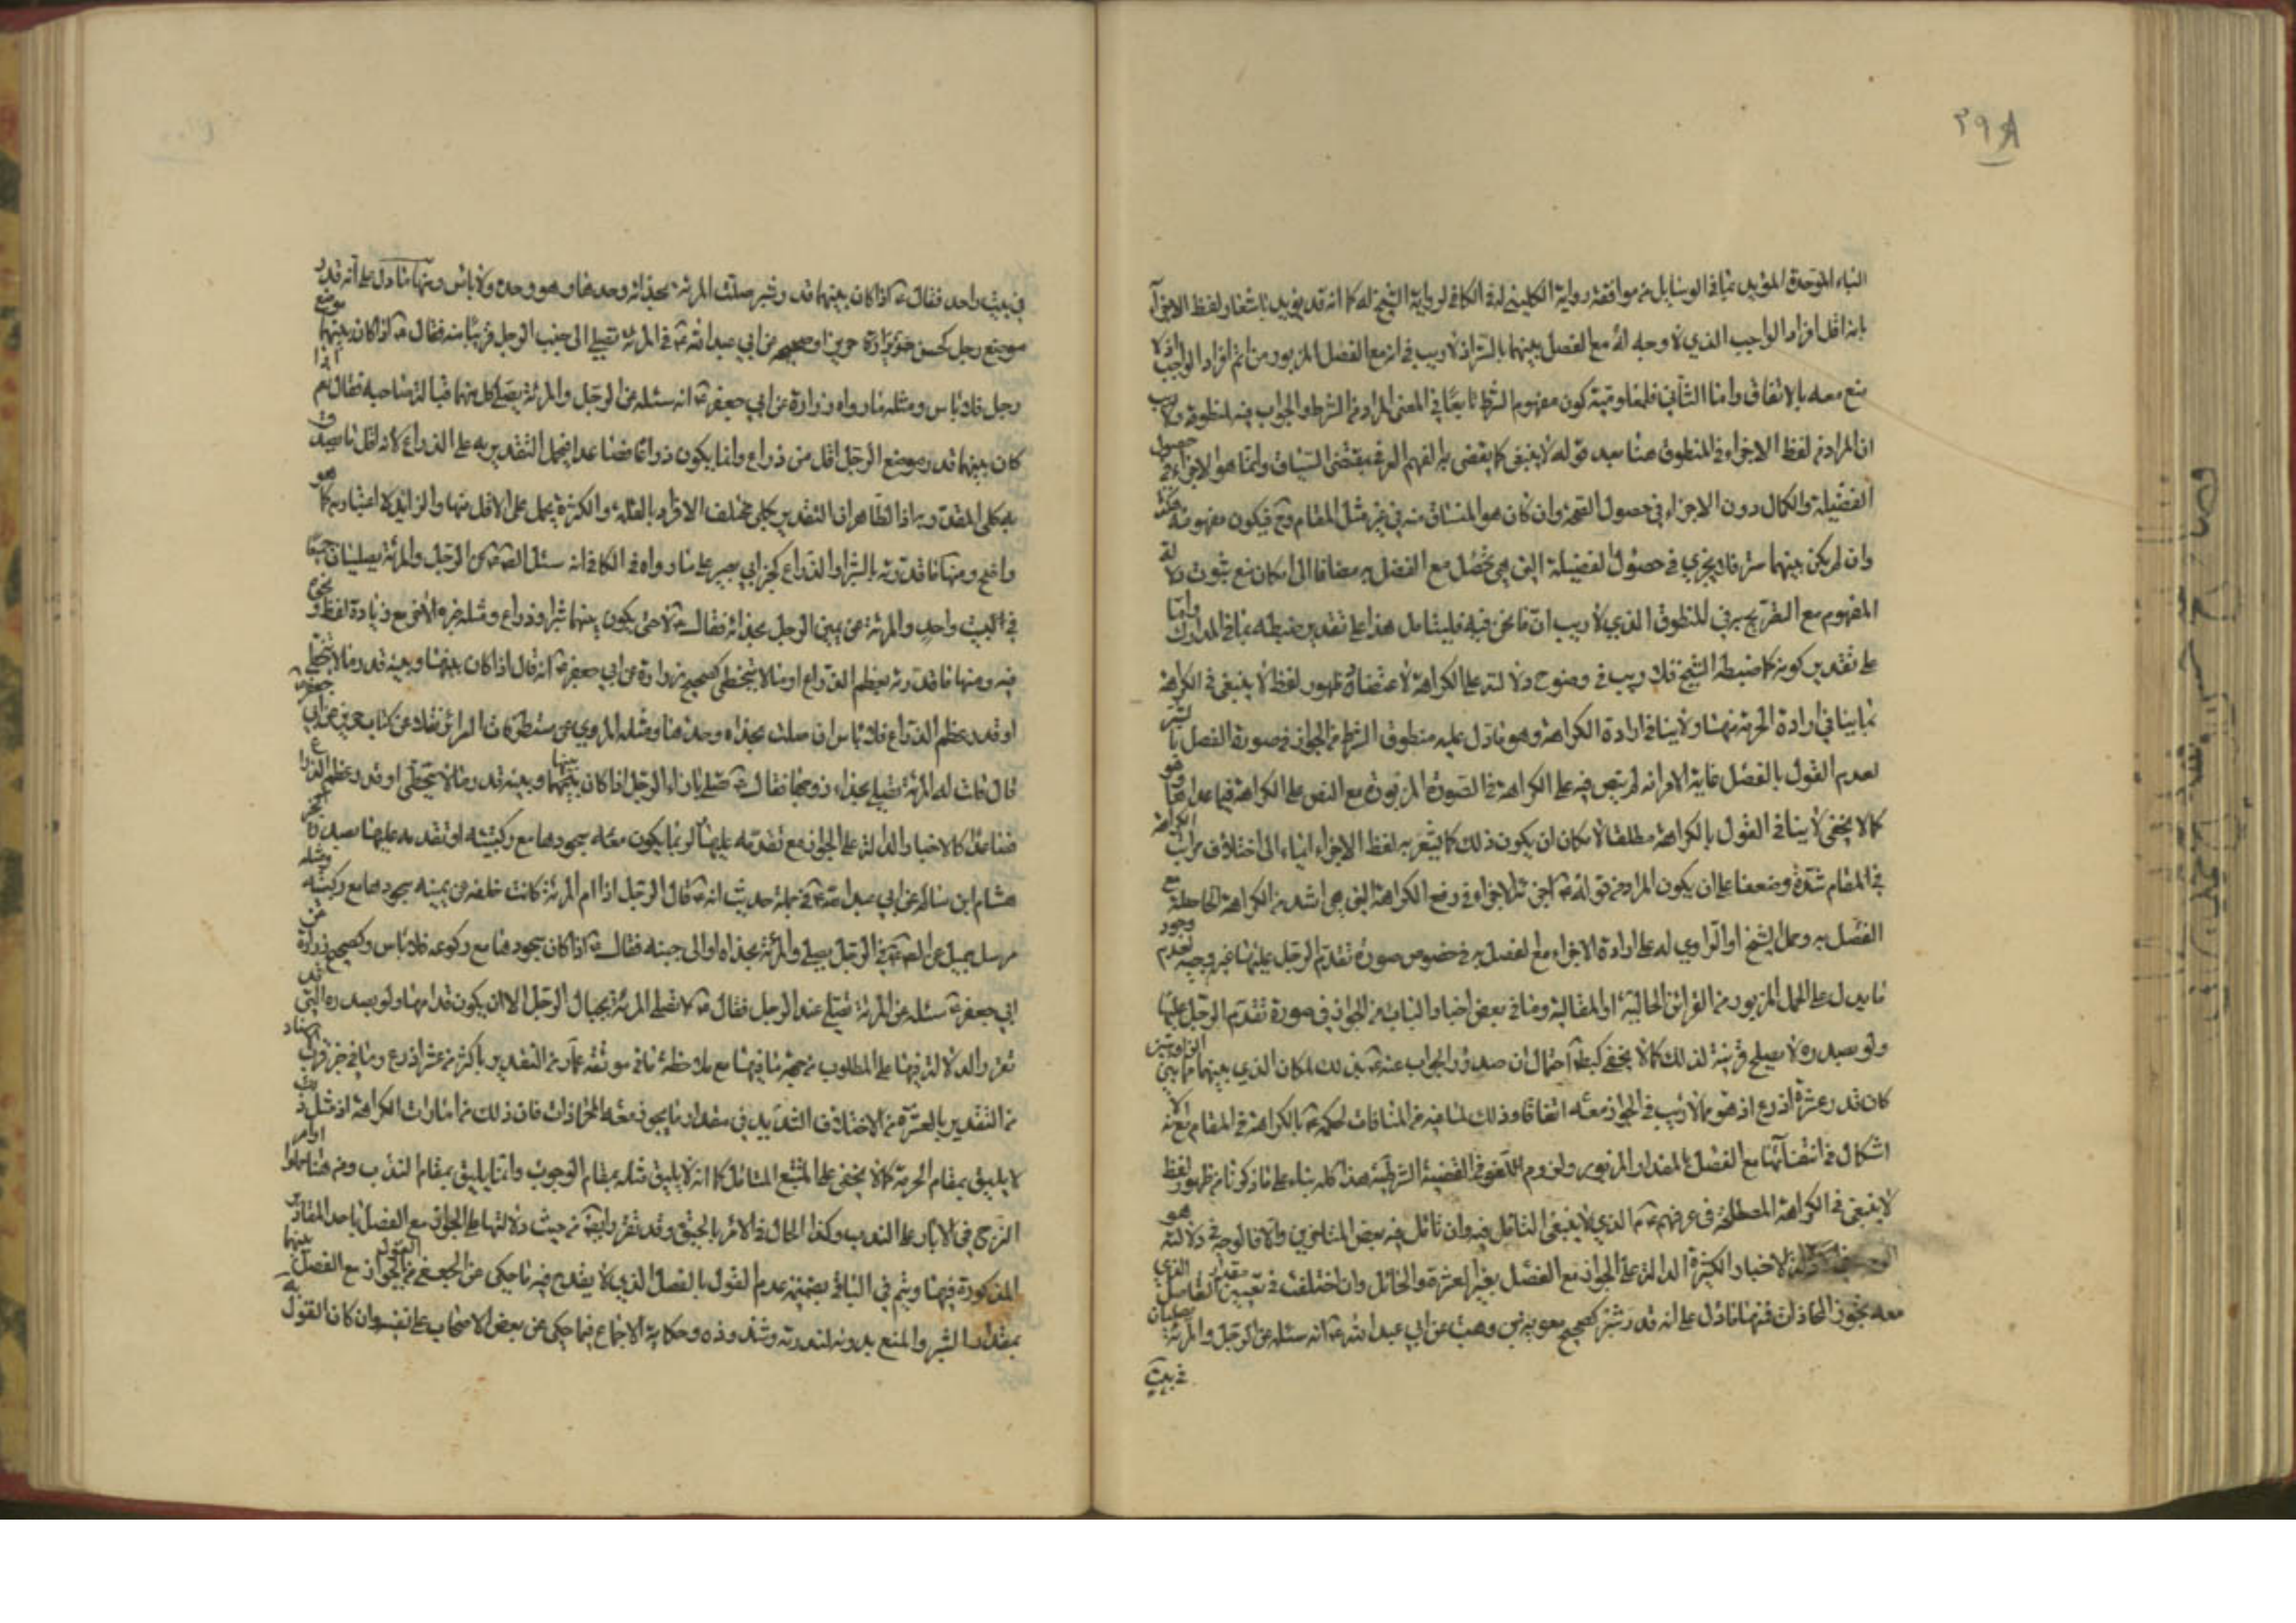 ٣٩٨
الباء الموحدة المؤيد بما في الوسايل من موافقة رواية الكليني له في الكافي لرواية الشيخ له كما انه قد يؤيد باشعار لفظ الاجزاء
بانه اقل افراد الواجب الذي لا وجه له مع الفصل بينهما بالستر اذ لا ريب في انه مع الفصل المزبور من اتم افراد الواجب اذ لا
منع معه بالاتفاق واما الثاني فلمعلومية كون مفهوم الشرط تابعا في المعنى المراد من الشرط والجواب فيه لمنطوقه ولا ريب
ان المراد من لفظ الاجزاء في المنطوق هنا بعد قوله لا ينبغي كما يقضي به الفهم العرفي بمقتضى السياق وانما هو الاجزاء في حصول
الفضيلة والكمال دون الاجزاء في حصول الصحة وان كان هو المنساق منه في غير مثل المقام وح فيكون مفهومه هكذا
وان لم يكن بينهما ستر فلا يجزي في حصول الفضيلة التي هي تحصل مع الفصل به مضافا الى امكان منع ثبوت دلالة
المفهوم مع التصريح به في المنطوق الذي لا ريب ان ما نحن فيه فليتامل هذا على تقدير ضبطه بما في المدارك واما
على تقدير كونه كما ضبطه الشيخ فلا ريب في وضوح دلالته على الكراهة لاعتضاد ظهور لفظ لا ينبغي في الكراهة
بما ينافي ارادة الحرمة منها ولا ينافي ارادة الكراهة وهو ما دل عليه منطوق الشرط من الجواز في صورة الفصل بالشبر
لعدم القول بالفصل غاية الامر انه لم ينص فيه على الكراهة في الصورة المزبورة مع النص على الكراهة فيما عداها وهو
كما لا يخفى لا ينافي القول بالكراهة مطلقا لامكان ان يكون ذلك كما يشعر به لفظ الاجزاء ايماء الى اختلاف مراتب الكراهة
في المقام شدة وضعفا على ان يكون المراد من قوله ع اجزئه الاجزاء في رفع الكراهة التي هي اشد من الكراهة الحاصلة مع
الفصل به وحمل الشيخ او الراوي له على ارادة الاجزاء مع الفصل به في خصوص صورة تقدم الرجل عليها غير وجيه لعدم وجود
ما يدل على الحمل المزبور من القرائن الحالية او المقالية وما في بعض اخبار الباب من الجواز في صورة تقدم الرجل عليها
ولو بصدره لا يصلح قرينة لذلك كما لا يخفى
كان قدر عشرة اذرع اذ هو مما لا ريب في الجواز معه اتفاقا وذلك لما فيه من المنافات لحكمه ع بالكراهة في المقام مع انه لا
اشكال في انتفائها مع الفصل بالمقدار المزبور ولزوم اللغو في القضية الشرطية هذا كله بناء على ما ذكرنا من ظهور لفظ
لا ينبغي في الكراهة المصطلحة في عرفهم ع الذي لا ينبغي التامل فيه وان تامل فيه بعض المتاخرين والا فالوجه في دلالته هو
الاخبار الكثيرة الدالة على الجواز مع الفصل بغير العشرة والحائل وان اختلفت في تعيين مقدار الفاصل الذي
معه يجوز المحاذات فمنها ما دل على انه قدر شبر كصحيح معوية بن وهب عن ابي عبد الله ع انه سئله عن الرجل والمرئة يصليان
في بيت
في بيت واحد فقال ع اذا كان بينهما قدر شبر صلت المرئة بحذائه وحدها وهو وحده ولا باس ومنها ما دل على انه قدر
موضع رجل كحسن حريز او صحيحه عن ابي عبد الله ع في المرئة تصلي الى جنب الرجل قريبا منه فقال ع اذا كان بينهما موضع
رجل فلا باس ومثله ما رواه زرارة عن ابي جعفر ع انه سئله عن الرجل والمرئة يصلي كل منهما قبالة صاحبه فقال نعم اذا
كان بينهما قدر موضع الرحل اقل من ذراع وانما يكون ذراعا فصاعدا فيحمل التقدير به على الذراع لانه اقل ما يصدق
به كلي المقدر به اذ الظاهر ان التقدير بكلي مختلف الافراد بالقلة والكثرة يحمل على الاقل منها والزايد لا اعتبار به كما هو
واضح ومنها ما قدرته بالشبر او الذراع كخبر ابي بصير على ما رواه في الكافي انه سئل الص ع عن الرجل والمرئة يصليان جميعا
في البيت واحد والمرئة عن يمين الرجل بحذائه فقال ع لا حتى يكون بينهما شبر او ذراع ومثله خبره الاخر مع زيادة لفظ او نحوه
فيه ومنها ما قدرته بعظم الذراع او ما لا يتخطى كصحيح زرارة عن ابي جعفر ع انه قال اذا كان بينها وبينه قدر ما لا يتخطى
او قدر عظم الذراع فلا باس ان صلت بحذاه وحدها ومثله المروي عن مستطرفات السرائر نقلا عن كتاب حريز عن ابي جعفر ع
قال قلت له المرئة تصلي بحذاء زوجها فقال ع تصلي بازاء الرجل اذا كان بينها وبينه قدر ما لا يتخطى او قدر عظم الذراع
فصاعدا كالاخبار الدالة على الجواز مع تقدمه عليها لو بما يكون معه سجودها مع ركبتيه او تقدمه عليها بصدره
هشام ابن سالم عن ابي عبد الله ع في جملة حديث انه ع قال الرجل اذا ام المرئة كانت خلفه عن يمينه سجودها مع ركبتيه ومثله
مرسل جميل عن الص ع في الرجل يصلي والمرئة بحذاه او الى جنبه فقال ع اذا كان سجودها مع ركوعه فلا باس وكصحيح زرارة عن
ابي جعفر ع سئله عن المرئة تصلي عند الرجل فقال ع لا تصلي المرئة بحيال الرجل الا ان يكون قدامها ولو بصدره التي قد
تقرر الدلالة فيها على المطلوب من جهة ما فيها مع ملاحظة ما في موثقة عمار من التقدير باكثر من عشر اذرع وما في خبر قرب الاسناد
من التقدير بالعشرة من الاختلاف الشديد في مقدار ما يجوز معه المحاذات فان ذلك من امارات الكراهة اذ مثل ذلك
لا يليق بمقام الحرمة كما لا يخفى على المتتبع المتامل كما انه لا يليق مثله بمقام الوجوب وانما يليق بمقام الندب ومن هنا حملوا اوامر
النزح في الابار على الندب وكذا الحال في الامر بالجيثي وقد تقرر ايضا من حيث دلالتها على الجواز مع الفصل باحد المقادير
المذكورة فيها ويتم في الباقي بضميمة عدم القول بالفصل الذي لا يقدح فيه ما حكي عن الجعفي من القول بالجواز مع الفصل بينهما
بمقدار الشبر والمنع بدونه لندرته وشذوذه وحكاية الاجماع فيما حكي عن بعض الاصحاب على نفيه وان كان القول به